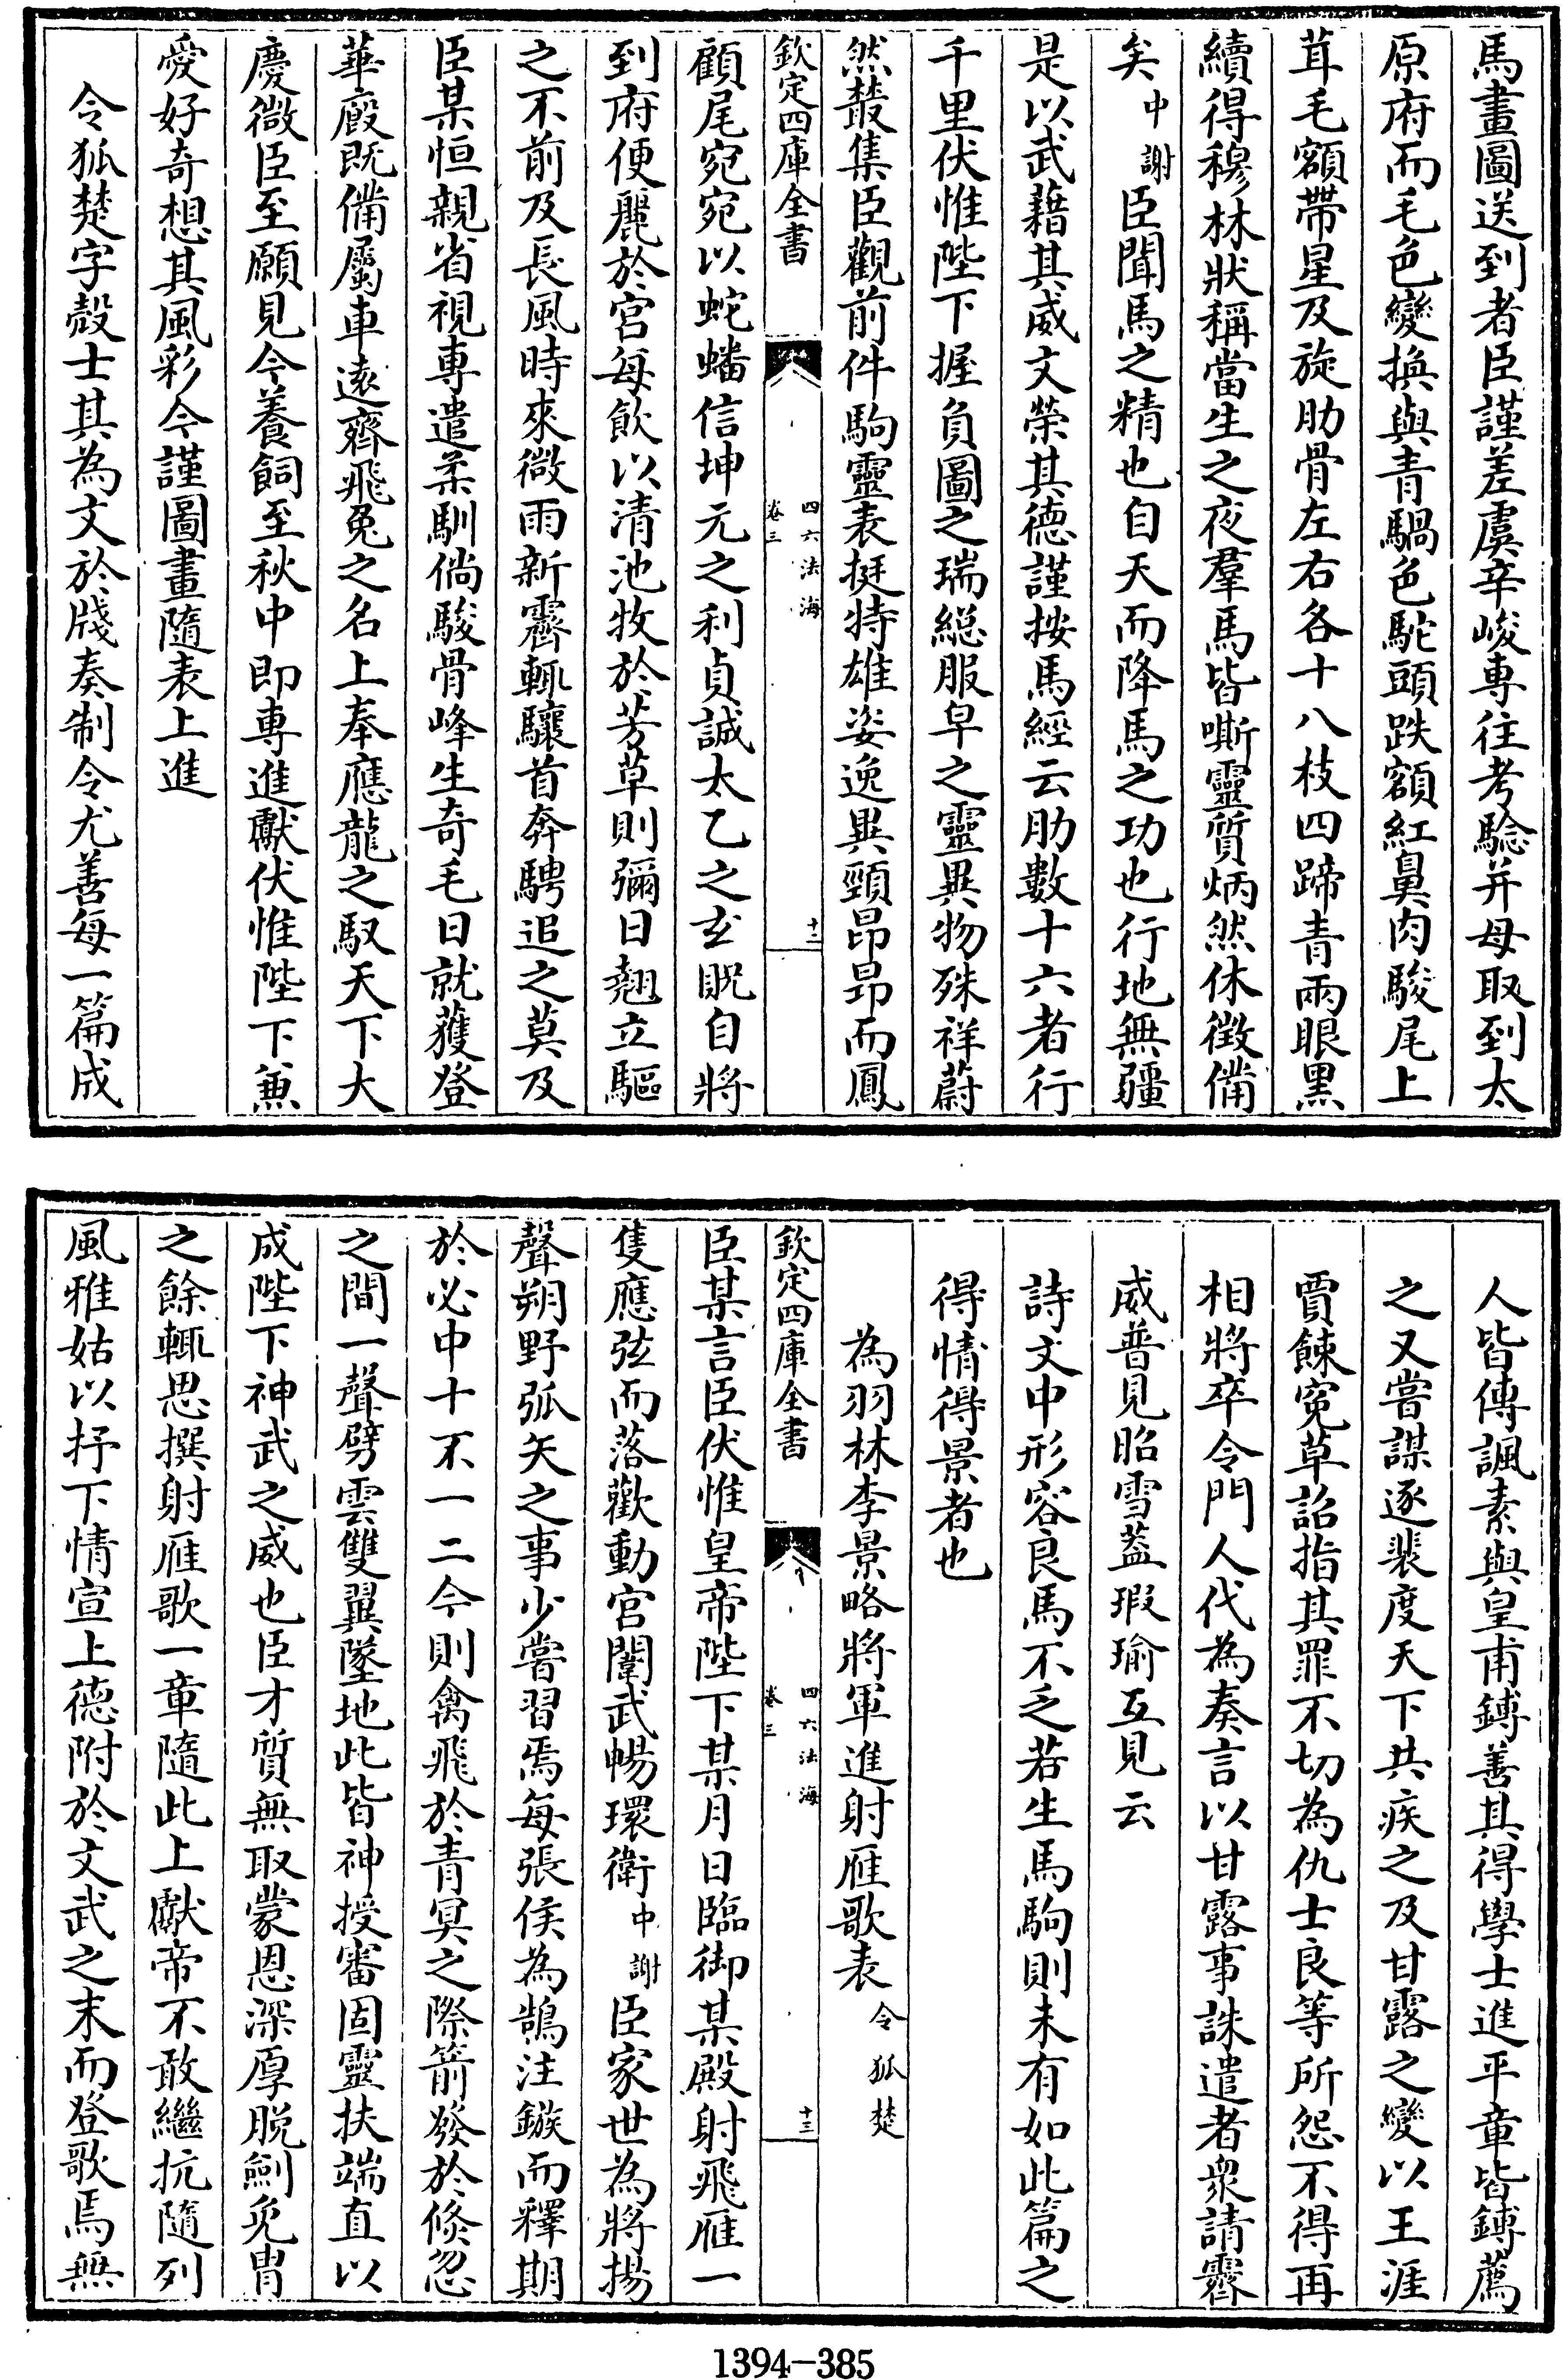 馬畫圖送到者臣謹差虞辛峻專往考驗并母取到太
原府而毛色變換與青騧色駝頭跌額紅鼻肉騣尾上
茸毛額帶星及旋肋骨左右各十八枝四蹄青兩眼黑
續得穆林狀稱當生之夜羣馬皆嘶靈質炳然休徴備
矣中謝臣聞馬之精也自天而降馬之功也行地無疆
是以武藉其威文榮其德謹按馬經云肋數十六者行
千里伏惟陛下握負圖之瑞總服皁之靈異物殊祥蔚
然叢集臣觀前件駒靈表挺特雄姿逸異頸昂昂而鳳
欽定四庫全書
四六法海
卷三
十二
顧尾宛宛以蛇蟠信坤元之利貞誠太乙之玄貺自將
到府便麗於宮每飲以清池牧於芳草則彌日翹立驅
之不前及長風時來微雨新霽輒驤首奔騁追之莫及
臣某恒親省視專遣柔馴倘駿骨峰生奇毛日就獲登
華廐既備屬車逺齊飛兔之名上奉應龍之馭天下大
慶微臣至願見今養飼至秋中即專進獻伏惟陛下兼
愛好奇想其風彩今謹圖畫隨表上進
令狐楚字殻士其為文於牋奏制令尤善每一篇成
人皆傳諷素與皇甫鏄善其得學士進平章皆鏄薦
之又嘗謀逐裴度天下共疾之及甘露之變以王涯
賈餗寃草詔指其罪不切為仇士良等所怨不得再
相將卒令門人代為奏言以甘露事誅遣者衆請霽
威普見昭雪蓋瑕瑜互見云
詩文中形容良馬不乏若生馬駒則未有如此篇之
得情得景者也
為羽林李景略將軍進射雁歌表 令狐楚
欽定四庫全書
四六法海
卷三
十三
臣某言臣伏惟皇帝陛下某月日臨御某殿射飛雁一
隻應弦而落歡動宮闈武暢環衛中謝臣家世為將揚
聲朔野弧矢之事少嘗習焉每張侯為鵠注鏃而釋期
於必中十不一二今則禽飛於青冥之際箭發於倏忽
之間一聲劈雲雙翼墜地此皆神授審固靈扶端直以
成陛下神武之威也臣才質無取蒙恩深厚脫劍免胄
之餘輒思撰射雁歌一章隨此上獻帝不敢繼抗隨列
風雅姑以抒下情宣上德附於文武之末而登歌焉無
1394-385